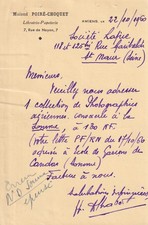 Maison POIRÉ-CHOQUET
Librairie-Papeterie
7, Rue de Noyon, 7
AMIENS, le 22/10/1960
Société Lapie
Rue Garibaldi
St Maur (Seine)
Messieurs,
Veuillez nous adresser
1 collection de Photographies
aériennes, consacrée à la
Somme, à 130 NF.
(votre lettre PF/KN du 17/10/60
adressée à école de garçons de
Candas (Somme)
Facture à nous.
Salutations distinguées